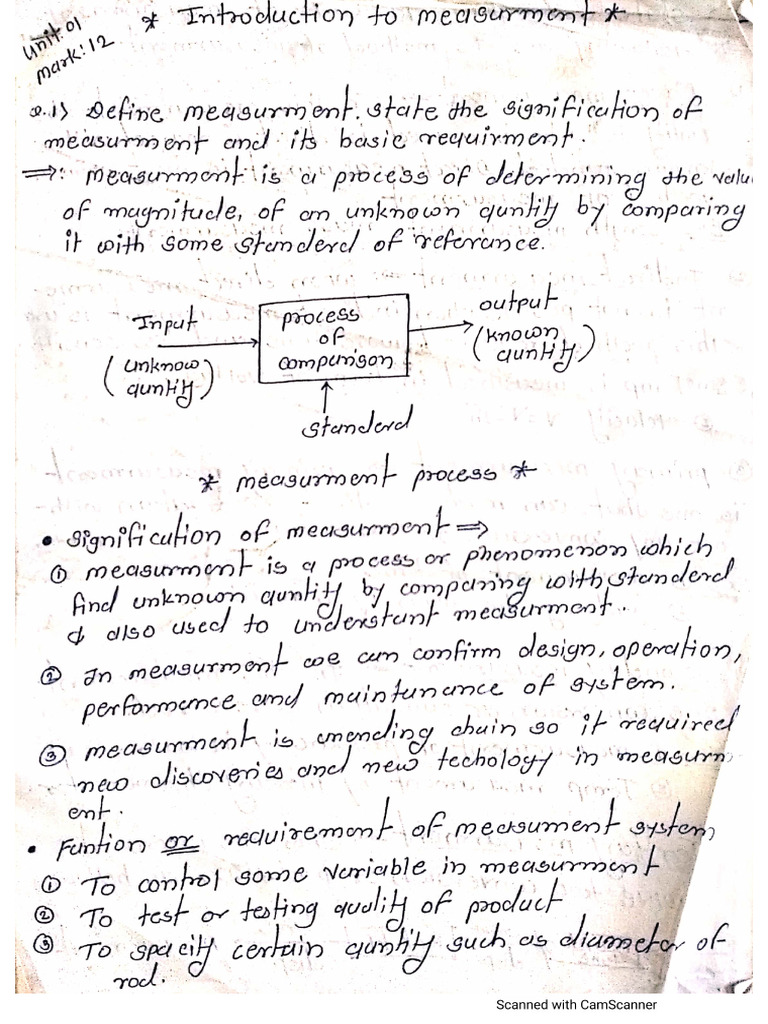 Unit: 01
mark: 12
* Introduction to measurment *
Q.1) Define measurment. state the signification of
measurment and its basic requirment.
⇒: measurment is a process of determining the valu
of magnitude, of an unknown quntity by comparing
it with some standerd of referance.
Input
(unknow
quntity)
process
of
comparison
output
(known
quntity)
standerd
* measurment process *
• signification of measurment ⇒
① measurment is a process or phenomenon which
find unknown quntity by comparing with standerd
& also used to understant measurment.
② In measurment we can confirm design, operation,
performence and maintunance of system.
③ measurment is unending chain so it required
new discoveries and new techology in measurm
ent.
• Funtion or requirement of measument system
① To control some variable in measurment
② To test or testing quality of product
③ To spacity certain quntity such as diameter of
rod.
Scanned with CamScanner